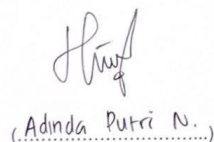 (Adinda Putri N.)